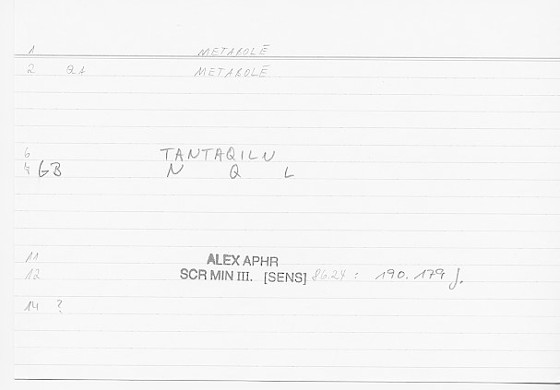 1 METABOLĒ
2 QA METABOLĒ
6 TANTAQILU
4 GB N Q L
11 ALEX APHR
12 SCR MIN III. [SENS] 86.24 : 190.179 f.
14 ?